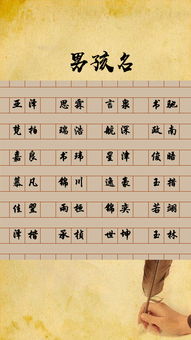 男孩名
亚泽 思霖 言泉 书驰
梵柏 瑞浩 航深 政南
嘉良 书玮 星津 俊皓
慕凡 锦川 逸豪 玉楷
佳垩 雨桓 锦奕 若翊
泽楷 承桢 世坤 玉林